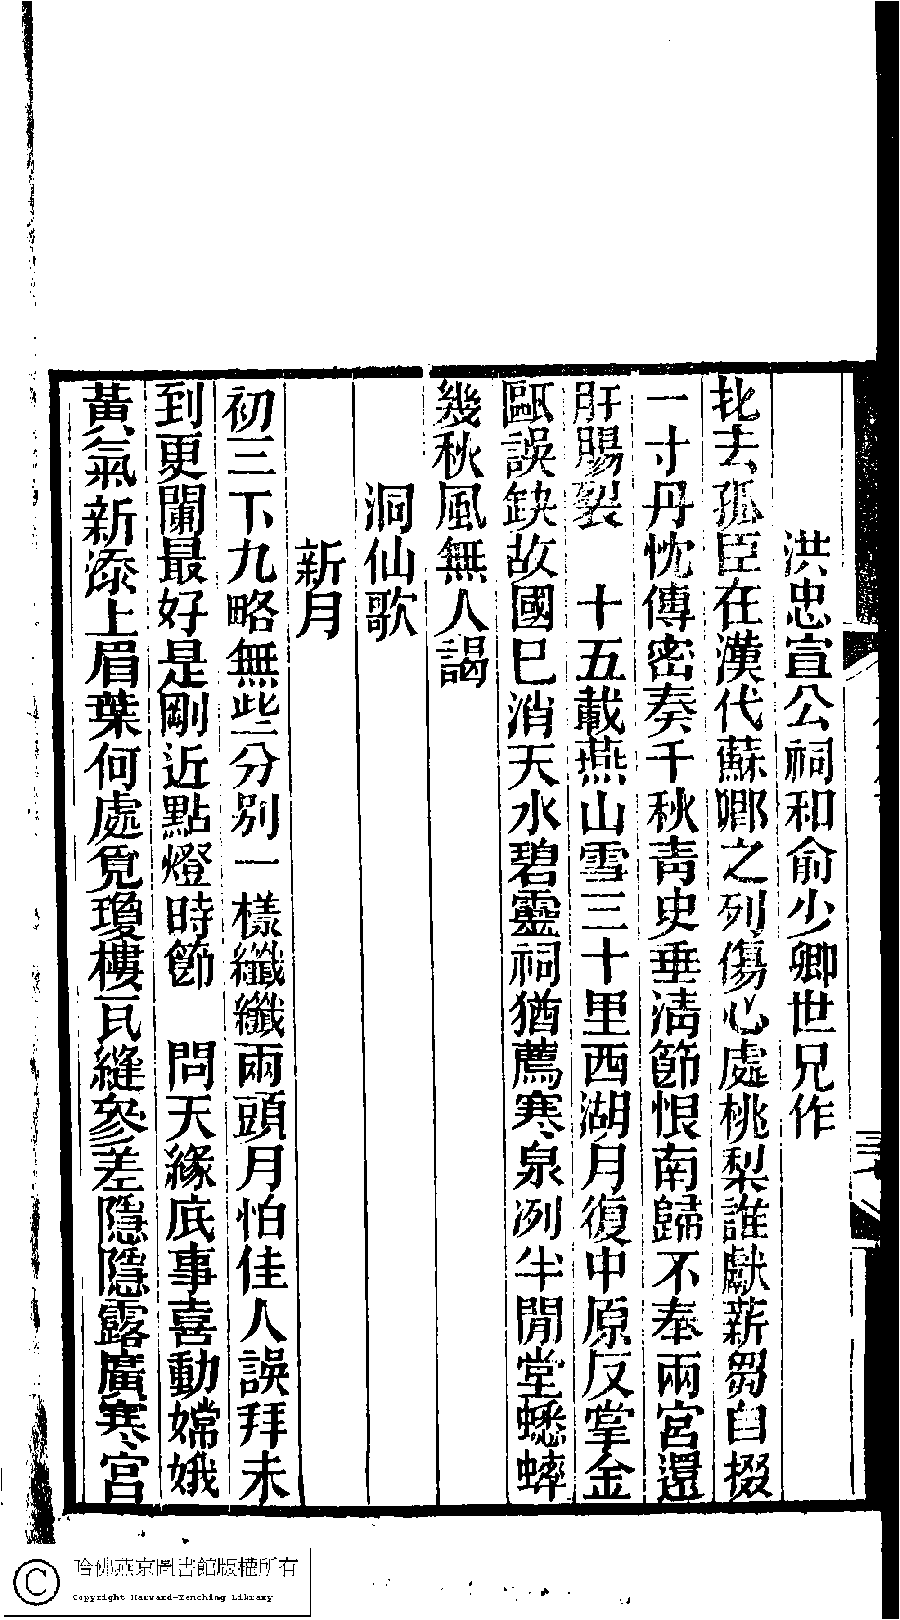 洪忠宣公祠和俞少卿世兄作
北去孤臣在漢代蘇卿之列傷心處桃梨誰獻薪芻自掇
一寸丹忱傳密奏千秋靑史垂淸節恨南歸不奉兩宮還
肝腸裂　十五載燕山雪三十里西湖月復中原反掌金
甌誤缺故國已消天水碧靈祠猶薦寒泉冽半閒堂蟋蟀
幾秋風無人謁
洞仙歌
新月
初三下九略無些分別一樣纖纖兩頭月怕佳人誤拜未
到更闌最好是剛近點燈時節　問天緣底事喜動嫦娥
黃氣新添上眉葉何處覓瓊樓瓦縫參差隱隱露廣寒宮
三
哈佛燕京圖書館版權所有
Copyright Harvard-Yenching Library